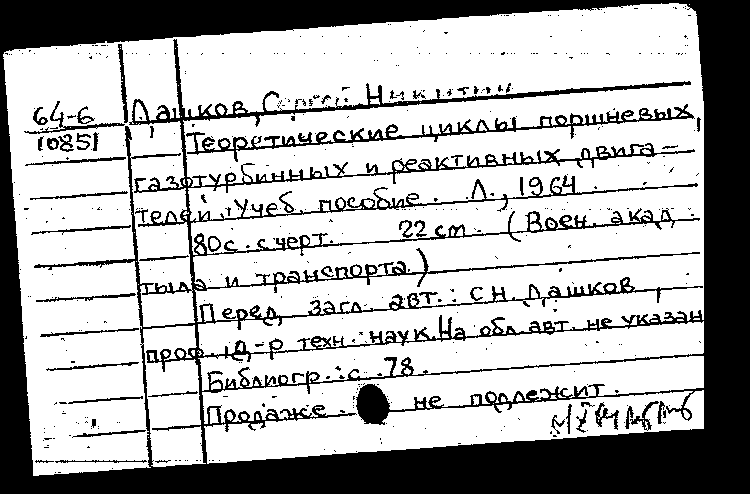 64-6 Дашков, Сергей Никитич
10851 Теоретические циклы поршневых,
газотурбинных и реактивных двига-
телей. Учеб. пособие. Л., 1964.
80с. с черт. 22 cm. (Воен. акад.
тыла и транспорта.)
Перед загл. авт.: С.Н. Дашков,
проф., д-р техн. наук. На обл. авт. не указан
Библиогр.: с. 78.
Продаже не подлежит.